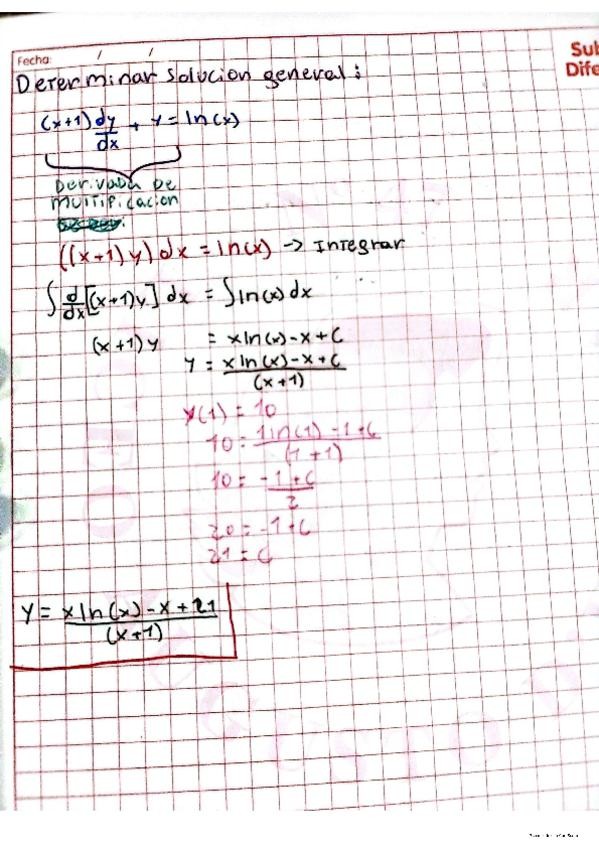 Fecha: / /
Sub
Dife
Determinar solucion general:
(x+1) dy/dx + y = ln(x)
Derivada de
multiplicacion
((x+1)y) dx = ln(x) → Integrar
∫ d/dx [(x+1)y] dx = ∫ ln(x) dx
(x+1)y = x ln(x) - x + C
y = x ln(x) - x + C / (x+1)
y(1) = 10
10 = 1 ln(1) - 1 + C / (1+1)
10 = -1 + C / 2
20 = -1 + C
21 = C
y = x ln(x) - x + 21 / (x+1)